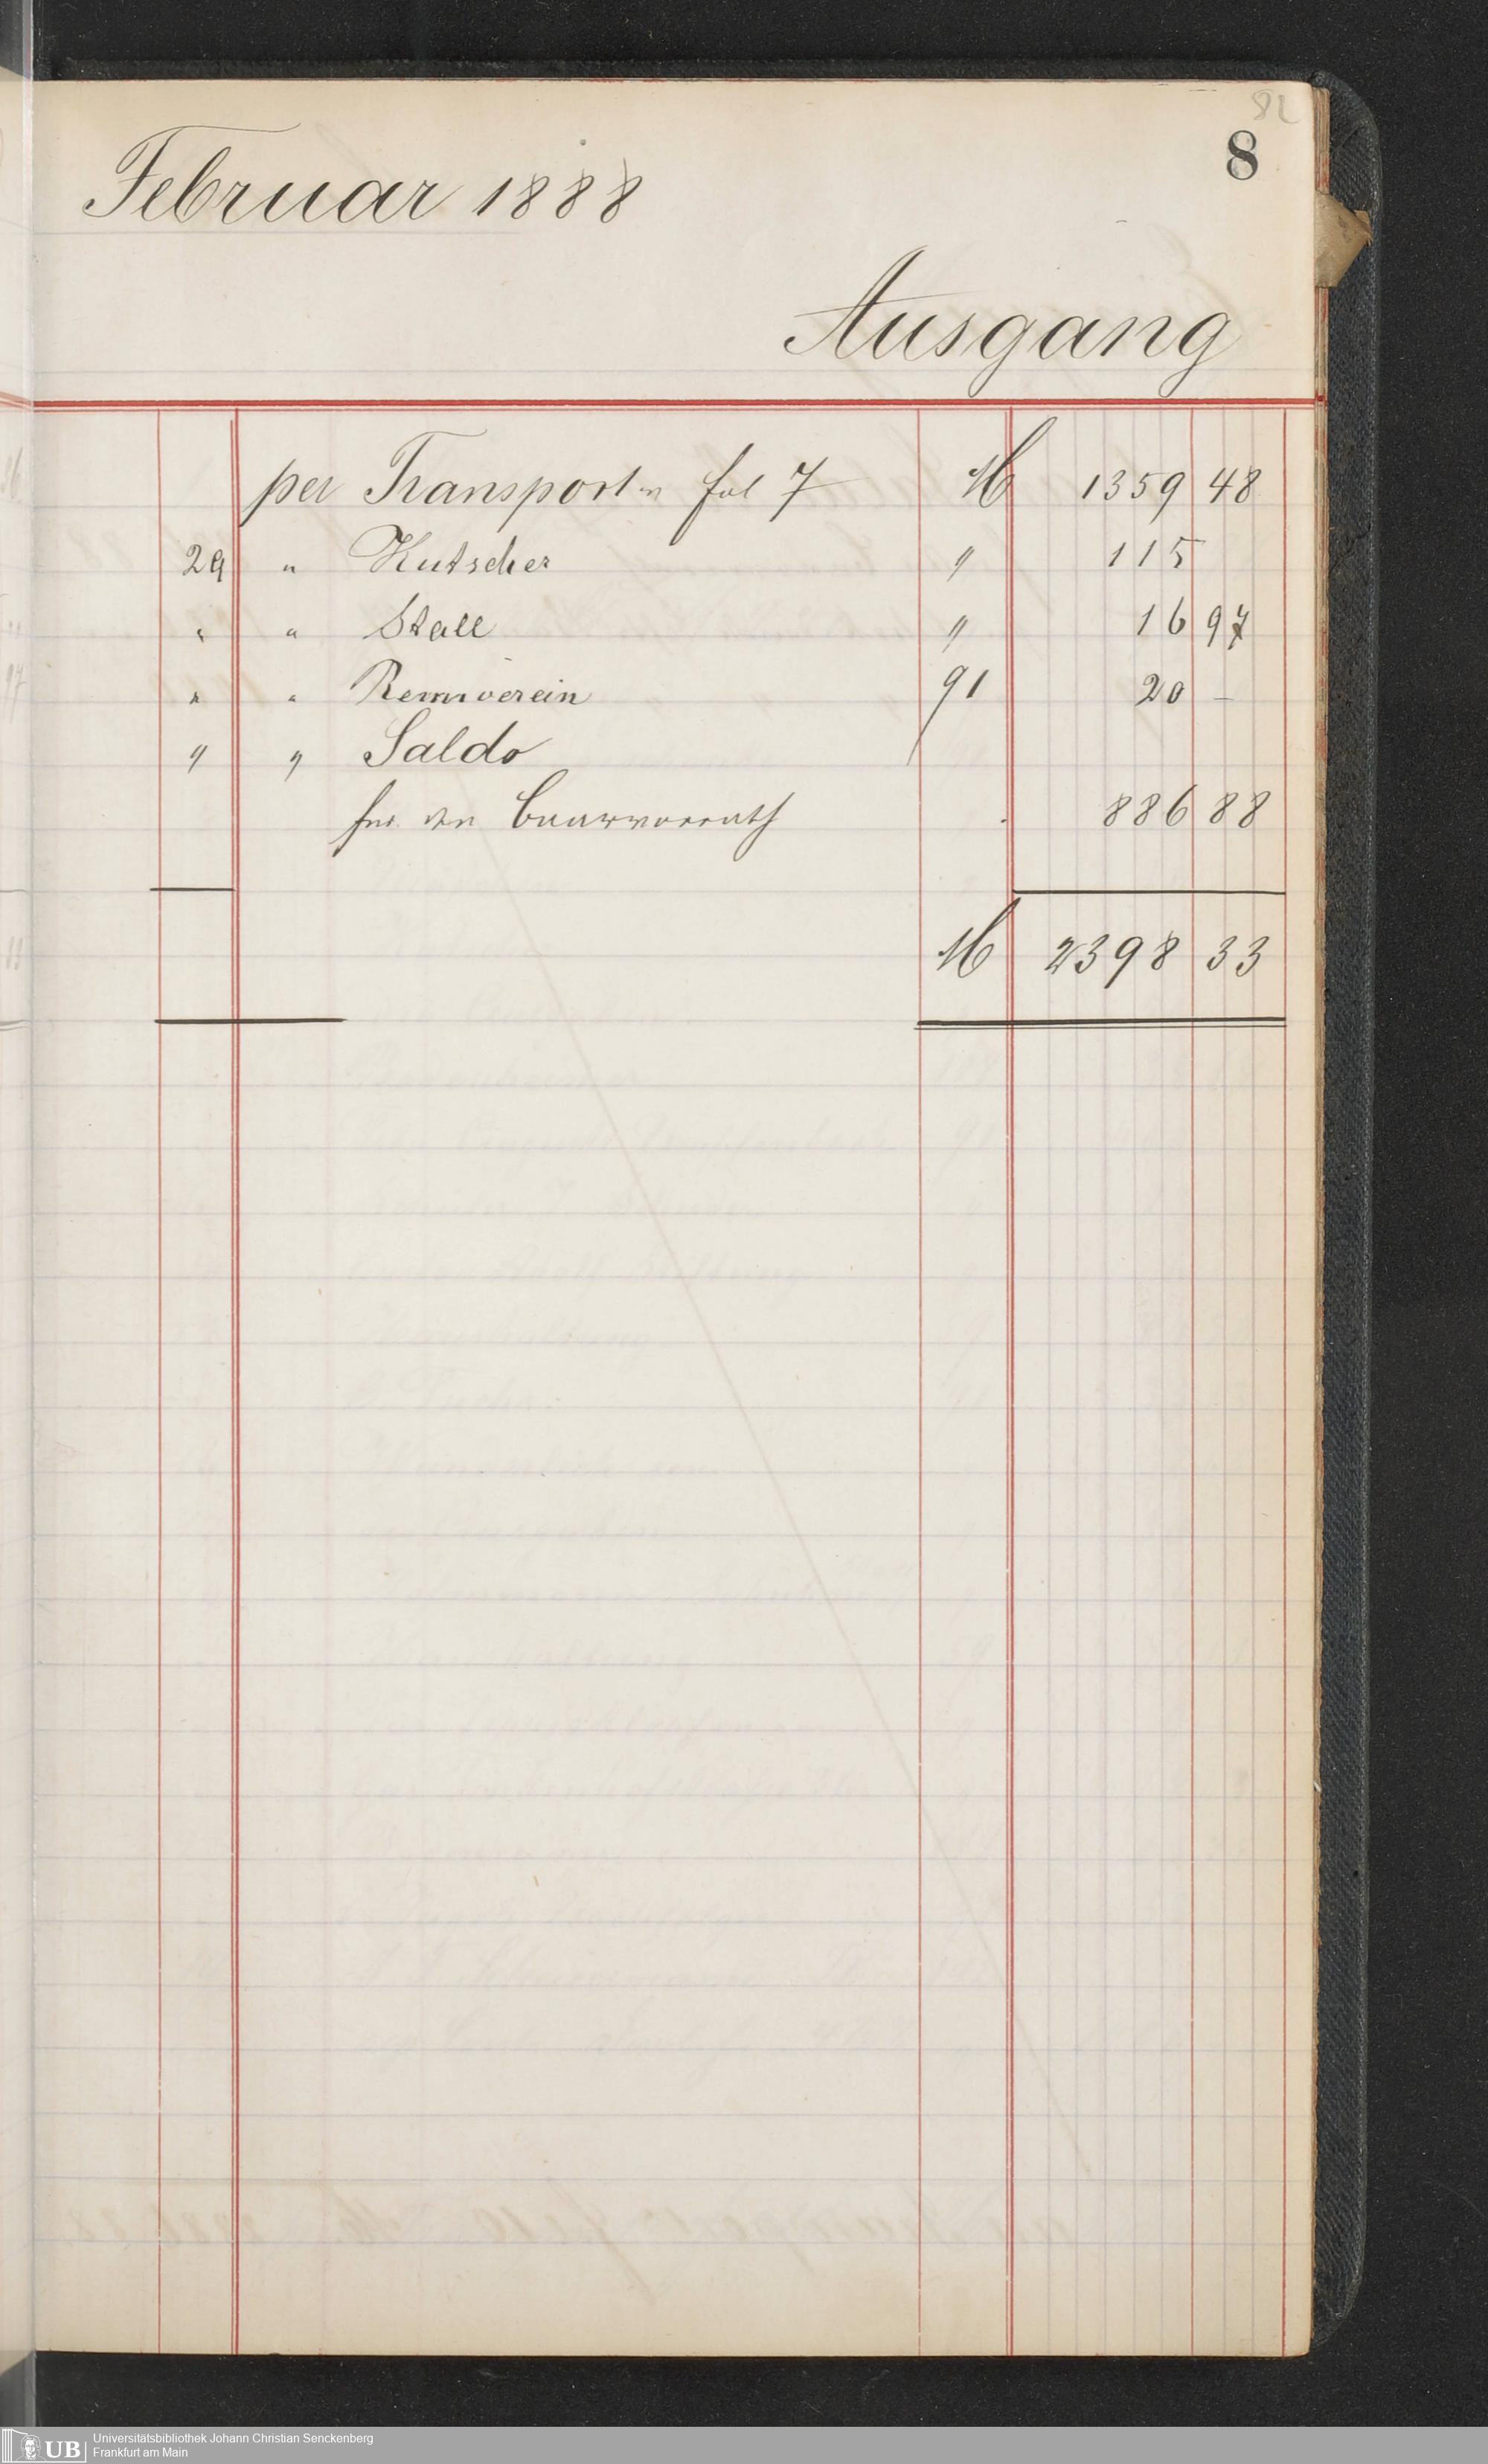 82
8
Februar 1888
Ausgang
per Transport v fol 7 M 1359 48
29 " Kutscher " 115
" " Stall " 16 97
" " Rennverein 91 20 –
" " Saldo
für den Baarvorrath 886 88
M 2398 33
UB Universitätsbibliothek Johann Christian Senckenberg
Frankfurt am Main